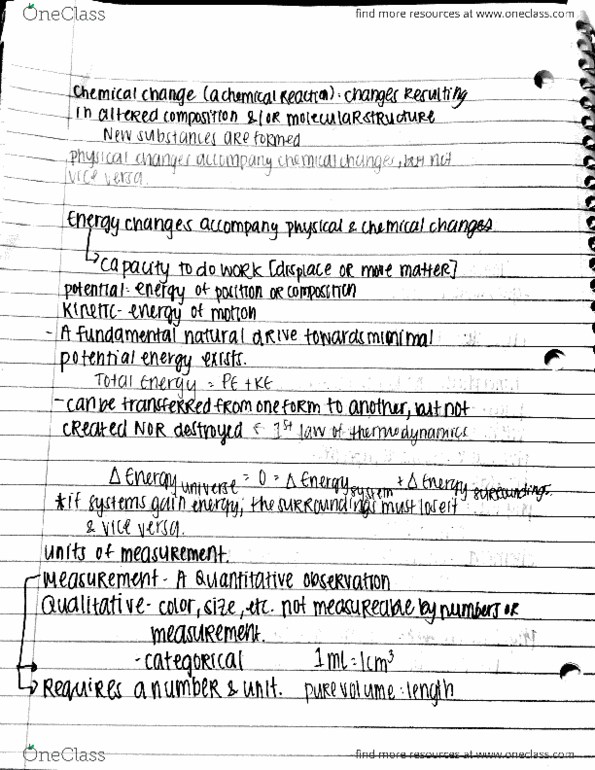 OneClass
find more resources at www.oneclass.com
chemical change (a chemical reaction): changes resulting
in altered composition &/or molecular structure
New substances are formed
physical changes accompany chemical changes, but not
vice versa.
Energy changes accompany physical & chemical changes
capacity to do work [displace or move matter]
potential: energy of position or composition
Kinetic- energy of motion
- A fundamental natural drive towards minimal
potential energy exists.
Total Energy = PE + KE
- can be transferred from one form to another, but not
created nor destroyed ← 1st law of thermodynamics
Δ Energy universe = 0 = Δ Energy system + Δ Energy surroundings
*if systems gain energy, the surroundings must lose it
& vice versa.
units of measurement.
Measurement - A Quantitative observation
Qualitative - color, size, etc. not measureable by numbers or
measurement.
- categorical 1ml = 1cm³
Requires a number & unit. pure volume = length
OneClass
find more resources at www.oneclass.com